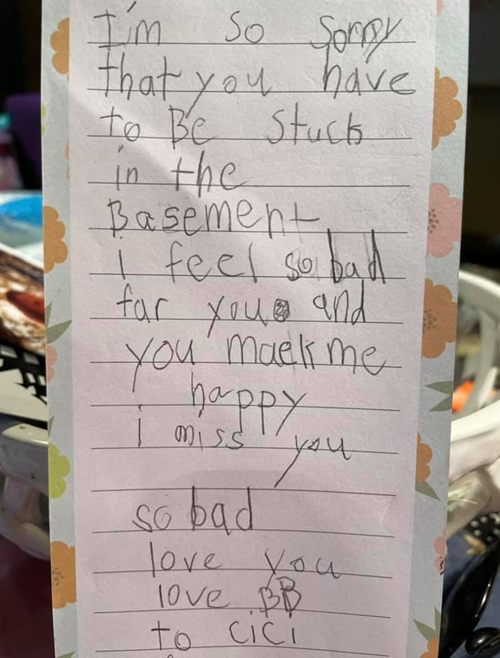 I'm so sorry
that you have
to Be stuck
in the
Basement
i feel so bad
far you and
you maek me
happy
i miss you
so bad
love you
love BB
to cici